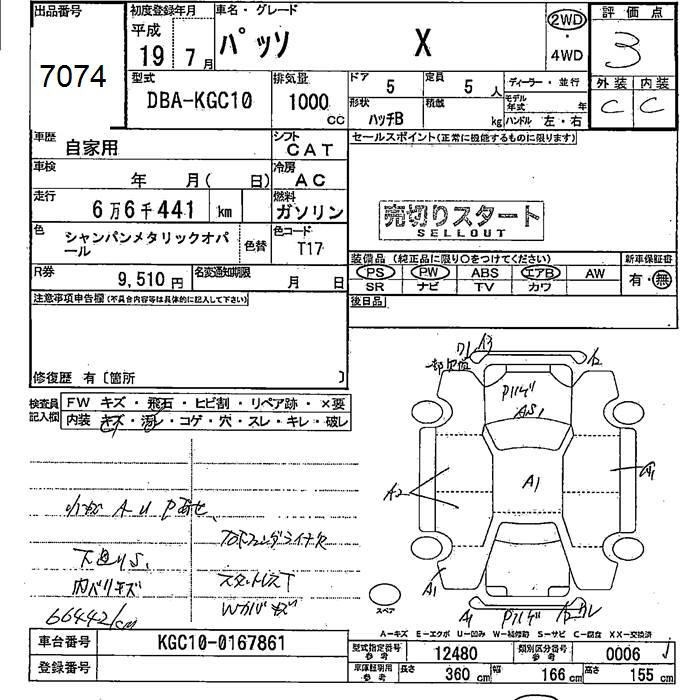 出品番号
7074
初度登録年月
平成
19 7月
車名・グレード
パッソ X
2WD
・
4WD
評価点
3
外装 内装
C C
型式
DBA-KGC10
排気量
1000
cc
ドア
5
定員
5 人
ディーラー・並行
形状
ハッチB
積載
kg
モデル年式 年
ハンドル 左・右
車歴
自家用
シフト
CAT
車検
年 月( 日)
冷房
AC
走行
6万6千441 km
燃料
ガソリン
色
シャンパンメタリックオパール
色替
色コード
T17
R券
9,510 円
名変通知期限
月 日
セールスポイント(正常に機能するものに限ります)
売切りスタート
SELLOUT
装備品 (純正品に限り○をつけてください)
新車保証書
PS PW ABS エアB AW
有・無
SR ナビ TV カワ
後日品
注意事項申告欄(不具合内容等は具体的に記入して下さい)
修復歴 有〔箇所 〕
検査員記入欄
FW キズ・飛石・ヒビ割・リペア跡・×要
内装 キズ・汚レ・コゲ・穴・スレ・キレ・破レ
A U P
下廻りS、
内バリキズ
66442km
スタットレス下
A1
A2
AS1
A1
A1
A1
A1
スペア
A-キズ E-エクボ U-凹み W-補修跡 S-サビ C-腐食 XX-交換済
車台番号
KGC10-0167861
登録番号
型式指定番号
参考
12480
類別区分番号
参考
0006
車庫証明用
参考
長さ
360 cm
幅
166 cm
高さ
155 cm